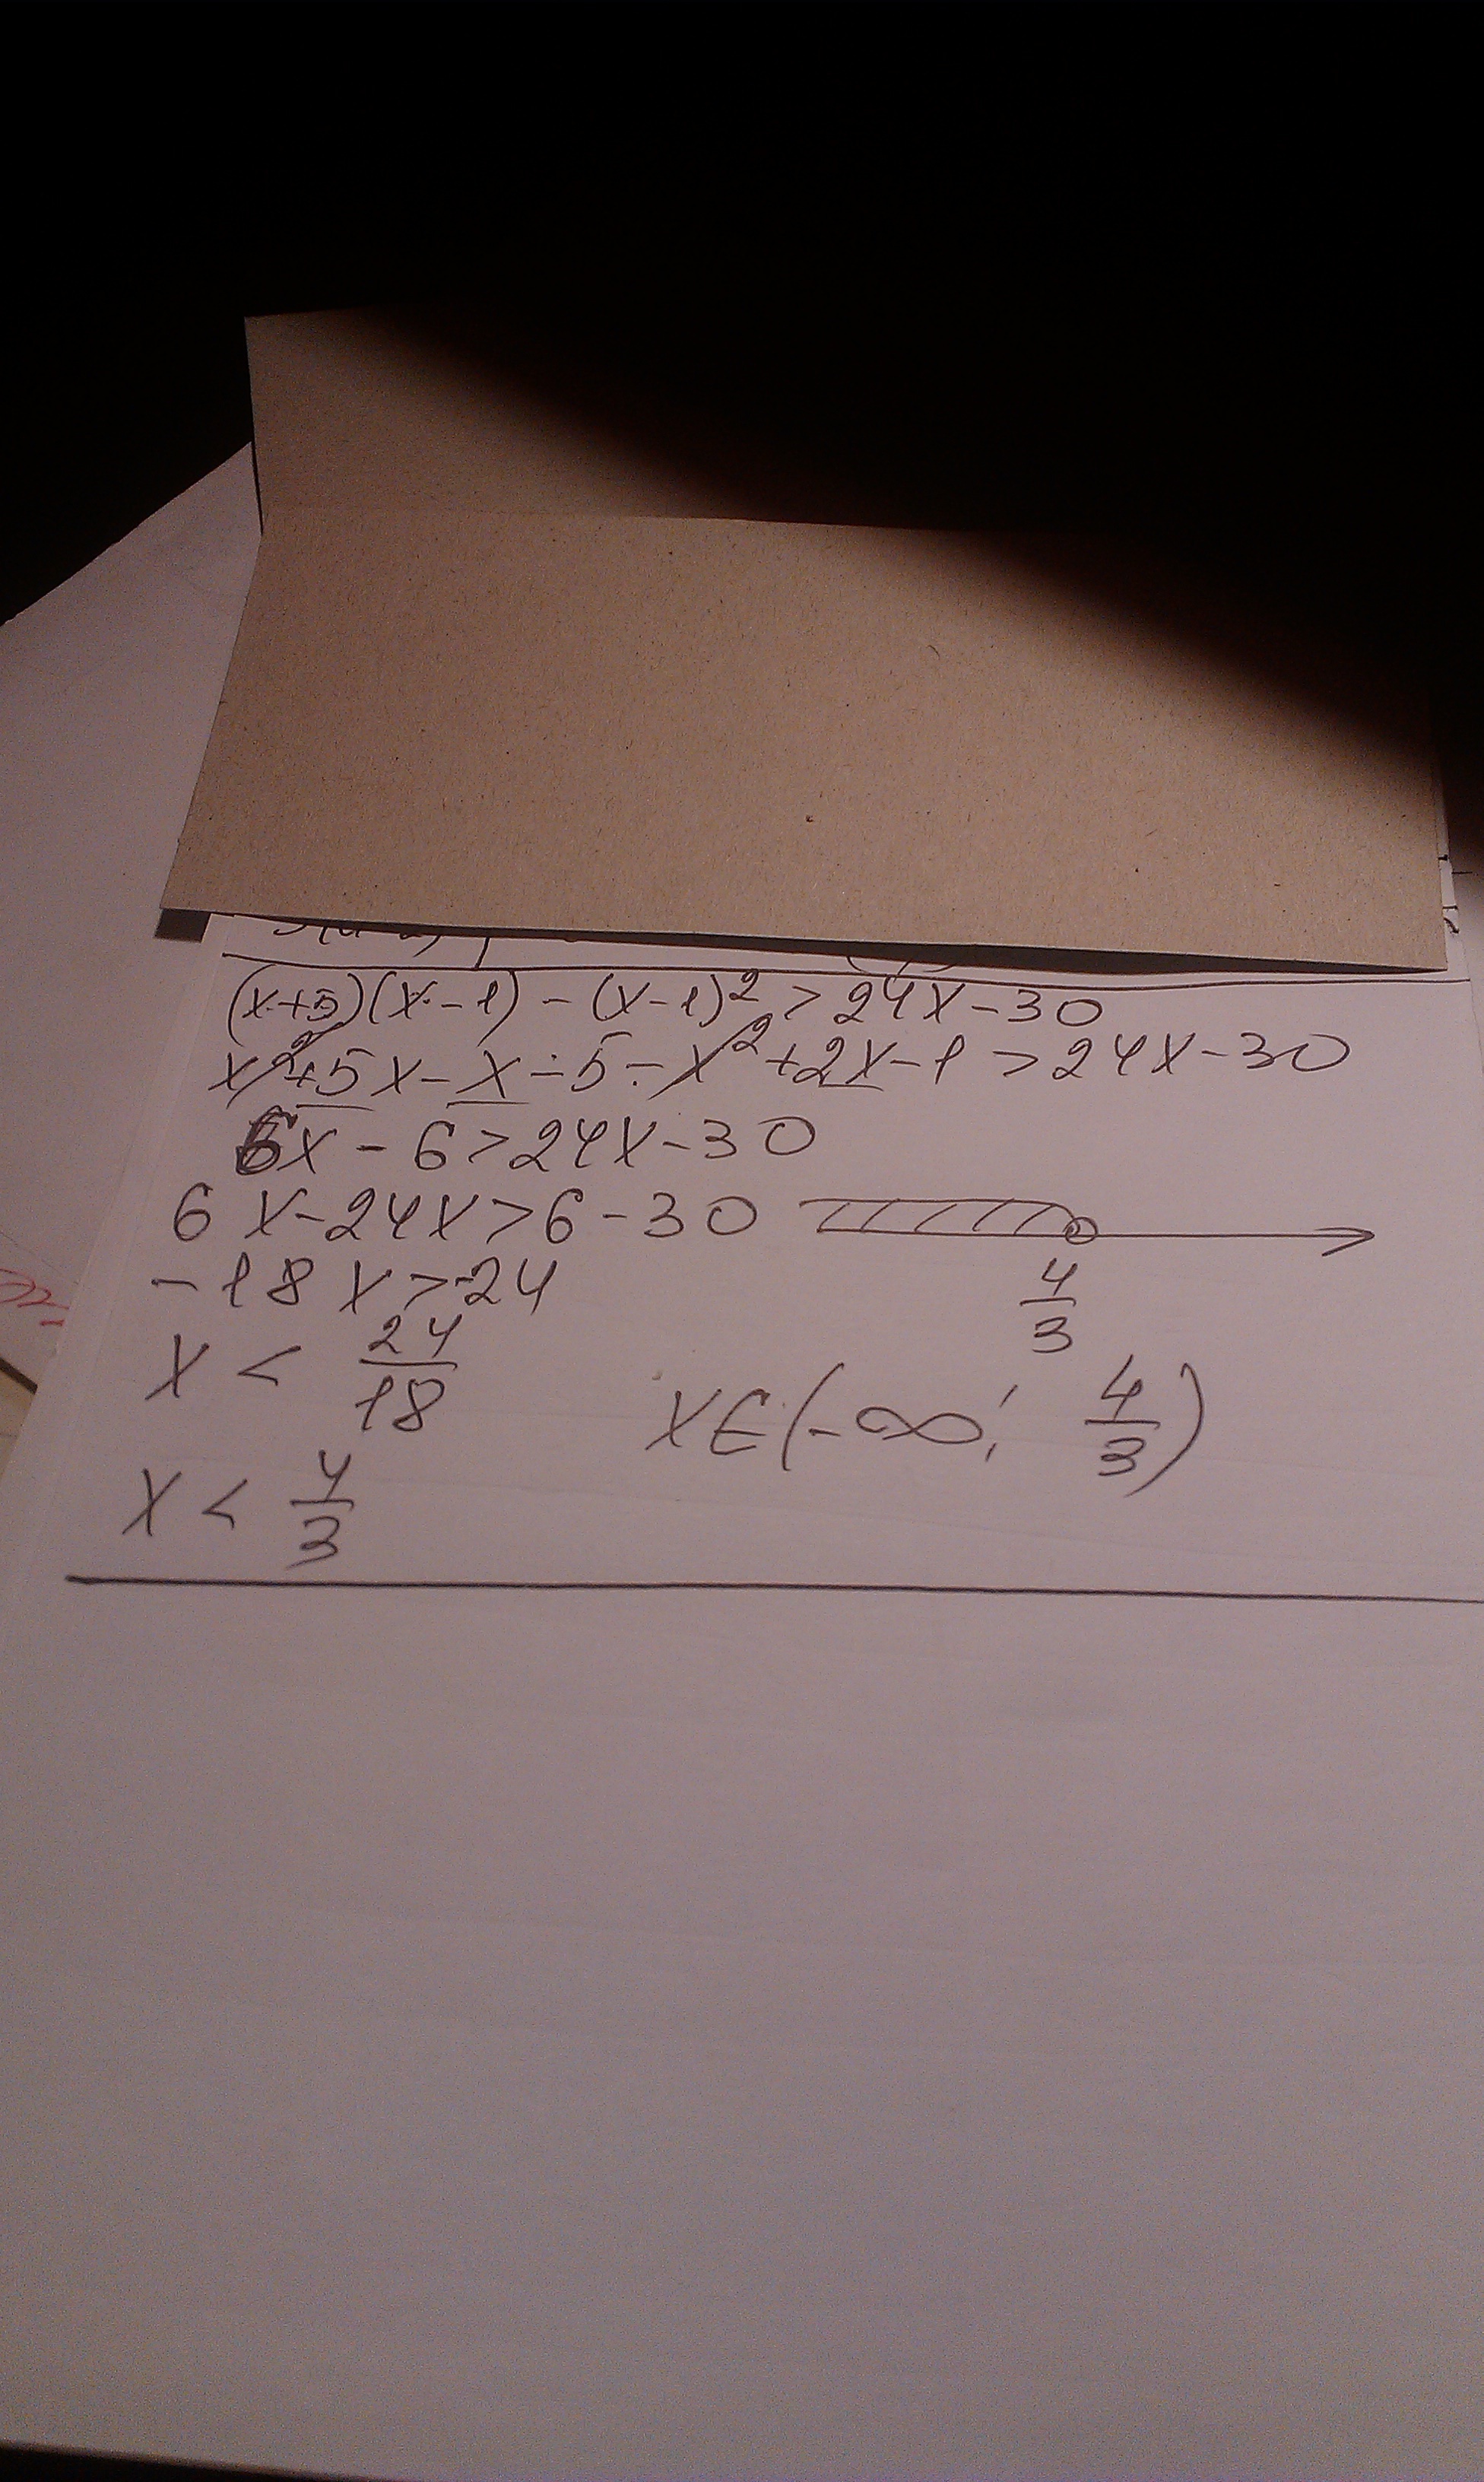 (x+5)(x-1)-(x-1)²>24x-30
x²+5x-x-5-x²+2x-1>24x-30
6x-6>24x-30
6x-24x>6-30
-18x>-24
x<24/18
x<4/3
4/3
x∈(-∞; 4/3)